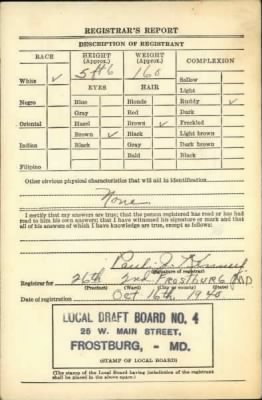 REGISTRAR'S REPORT
DESCRIPTION OF REGISTRANT
RACE HEIGHT (Approx.) WEIGHT (Approx.) COMPLEXION
White ✓ 5 ft 6 160 Sallow
Light
EYES HAIR Ruddy ✓
Negro Blue Blonde Dark
Gray Red Freckled
Oriental Hazel Brown ✓ Light brown
Brown ✓ Black Dark brown
Indian Black Gray Black
Bald
Filipino
Other obvious physical characteristics that will aid in identification
None
I certify that my answers are true; that the person registered has read or has had
read to him his own answers; that I have witnessed his signature or mark and that
all of his answers of which I have knowledge are true, except as follows:
Paul
(Signature of registrar)
Registrar for 26th 2nd FROSTBURG MD
(Precinct) (Ward) (City or county) (State)
Date of registration Oct 16th 1940
LOCAL DRAFT BOARD NO. 4
25 W. MAIN STREET,
FROSTBURG, - MD.
(STAMP OF LOCAL BOARD)
(The stamp of the Local Board having jurisdiction of the registrant
shall be placed in the above space.)